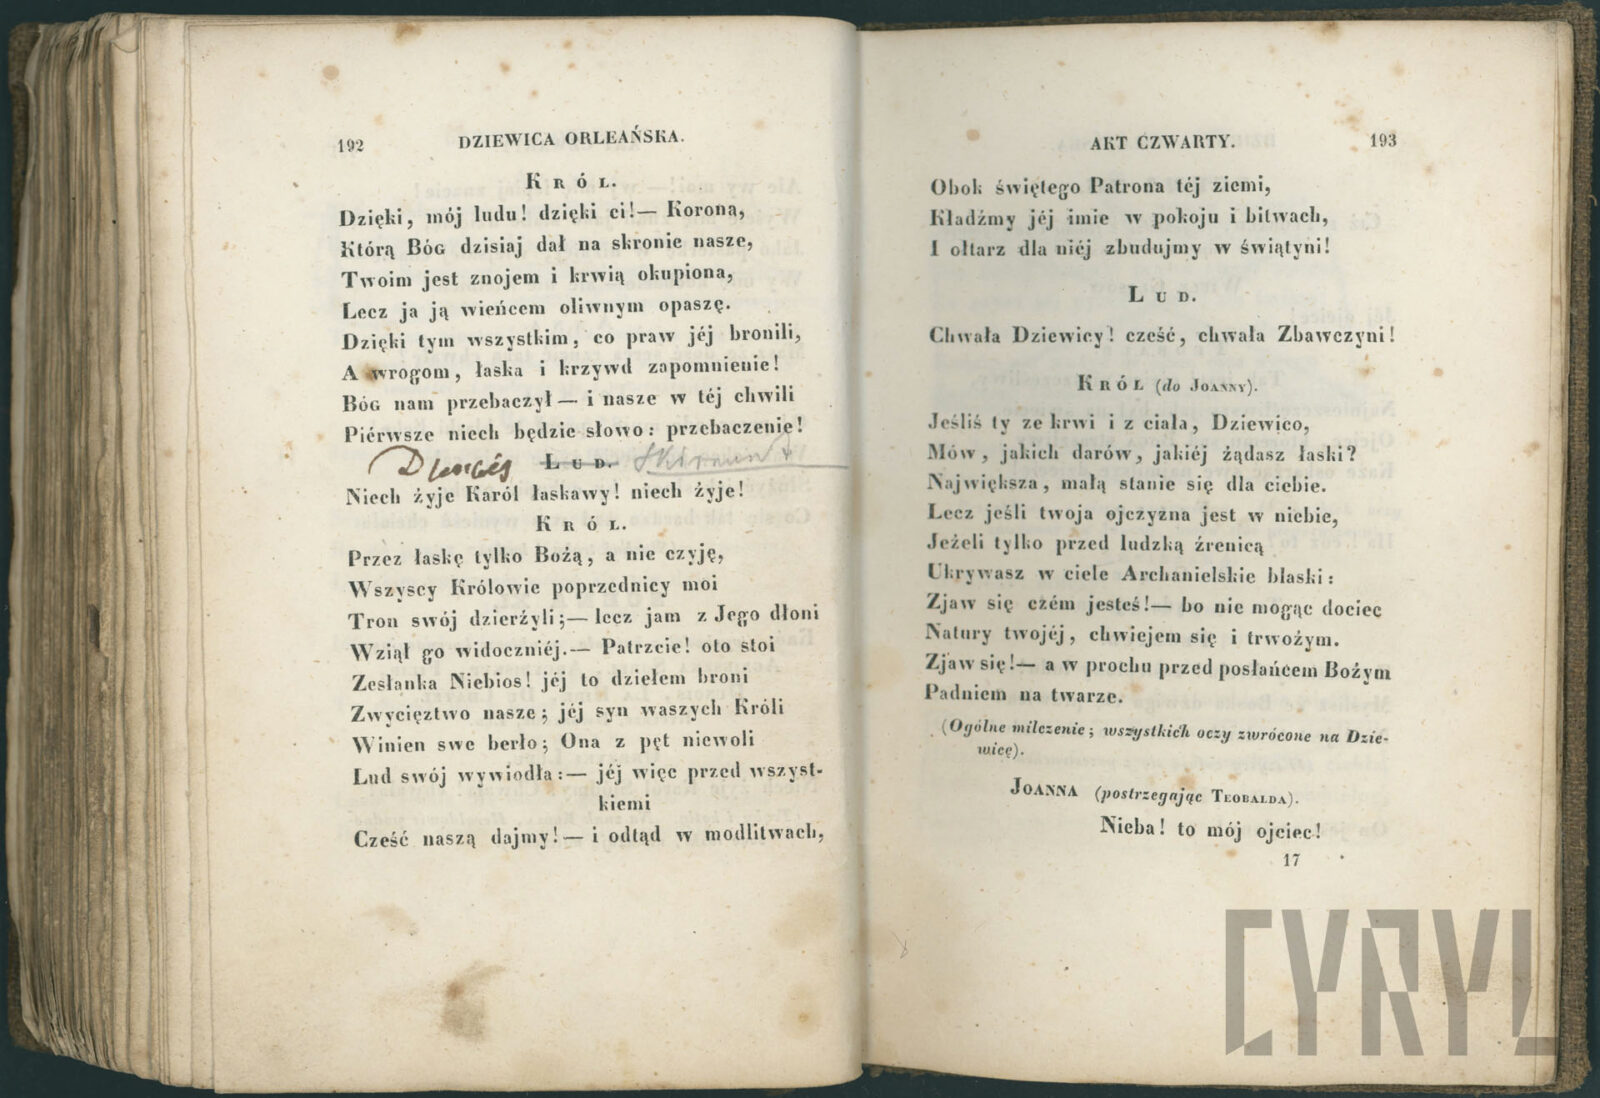 192 DZIEWICA ORLEAŃSKA.
KRÓL.
Dzięki, mój ludu! dzięki ci!— Korona,
Którą BÓG dzisiaj dał na skronie nasze,
Twoim jest znojem i krwią okupiona,
Lecz ja ją wieńcem oliwnym opaszę.
Dzięki tym wszystkim, co praw jéj bronili,
A wrogom, łaska i krzywd zapomnienie!
BÓG nam przebaczył — i nasze w téj chwili
Piérwsze niech będzie słowo: przebaczenie!
LUD.
Niech żyje Karól łaskawy! niech żyje!
KRÓL.
Przez łaskę tylko Bożą, a nie czyję,
Wszyscy Królowie poprzednicy moi
Tron swój dzierżyli;— lecz jam z Jego dłoni
Wziął go widoczniéj.— Patrzcie! oto stoi
Zesłanka Niebios! jéj to dziełem broni
Zwycięztwo nasze; jéj syn waszych Króli
Winien swe berło; Ona z pęt niewoli
Lud swój wywiodła:— jéj więc przed wszyst-
kiemi
Cześć naszą dajmy!— i odtąd w modlitwach,
AKT CZWARTY. 193
Obok świętego Patrona téj ziemi,
Kładźmy jéj imie w pokoju i bitwach,
I ołtarz dla niéj zbudujmy w świątyni!
LUD.
Chwała Dziewicy! cześć, chwała Zbawczyni!
KRÓL (do JOANNY).
Jeśliś ty ze krwi i z ciała, Dziewico,
Mów, jakich darów, jakiéj żądasz łaski?
Największa, małą stanie się dla ciebie.
Lecz jeśli twoja ojczyzna jest w niebie,
Jeżeli tylko przed ludzką źrenicą
Ukrywasz w ciele Archanielskie blaski:
Zjaw się czém jesteś!— bo nie mogąc dociec
Natury twojéj, chwiejem się i trwożym.
Zjaw się!— a w prochu przed posłańcem Bożym
Padniem na twarze.
(Ogólne milczenie; wszystkich oczy zwrócone na Dzie-
wicę).
JOANNA (postrzegając TEOBALDA).
Nieba! to mój ojciec!
17
CYRYL